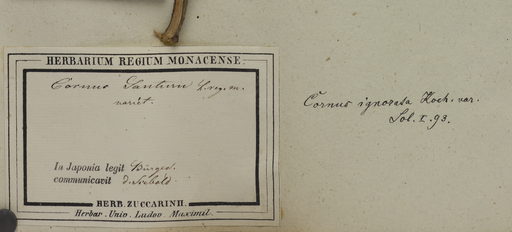 HERBARIUM REGIUM MONACENSE.
Cornus
variet.
In Japonia legit Bürger.
communicavit d. Siebold.
HERB. ZUCCARINII.
Herbar. Univ. Ludov. Maximil.
Cornus ignorata Koch. var.
Sol. I. 93.